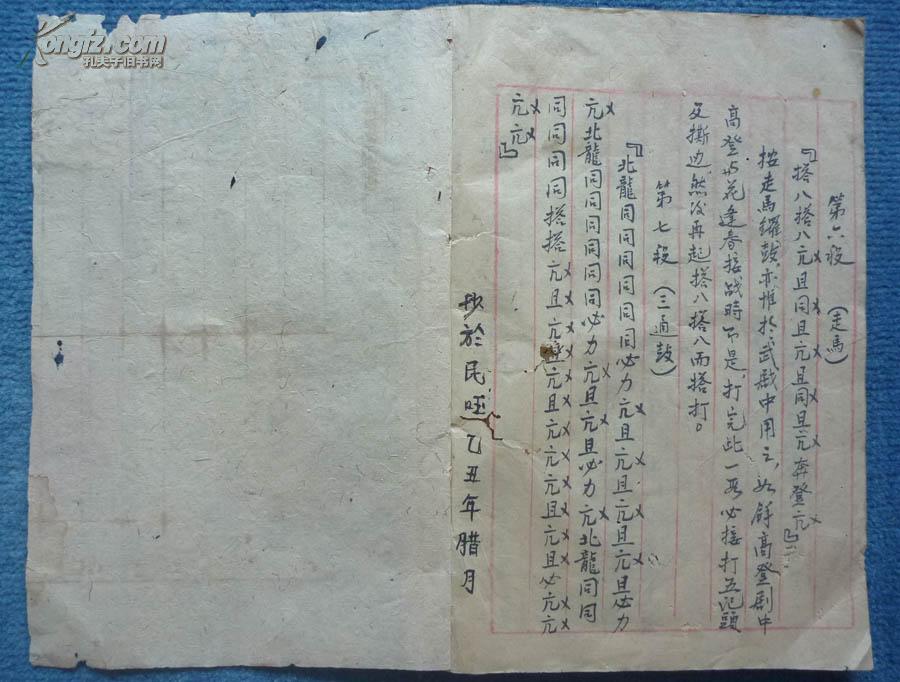 第六段 (走馬)
『搭八搭八亢且同且亢且同且亢奔登亢』
按走馬鑼鼓,亦惟於武戲中用之,如 高登剧中
高登与花逢春接战時 是,打完此一段必接打五記頭
及撕边,然没再起搭八搭八而搭打。
第七段 (三通鼓)
『北龍同同同同同同必力亢且亢且亢且亢且必力
亢北龍同同同同同同必力亢且亢且必力亢北龍同同
同同同同搭搭亢且亢 亢且亢且亢亢且亢且必亢亢
亢亢』
抄於民 乙丑年腊月
Kongfz.com
孔夫子旧书网